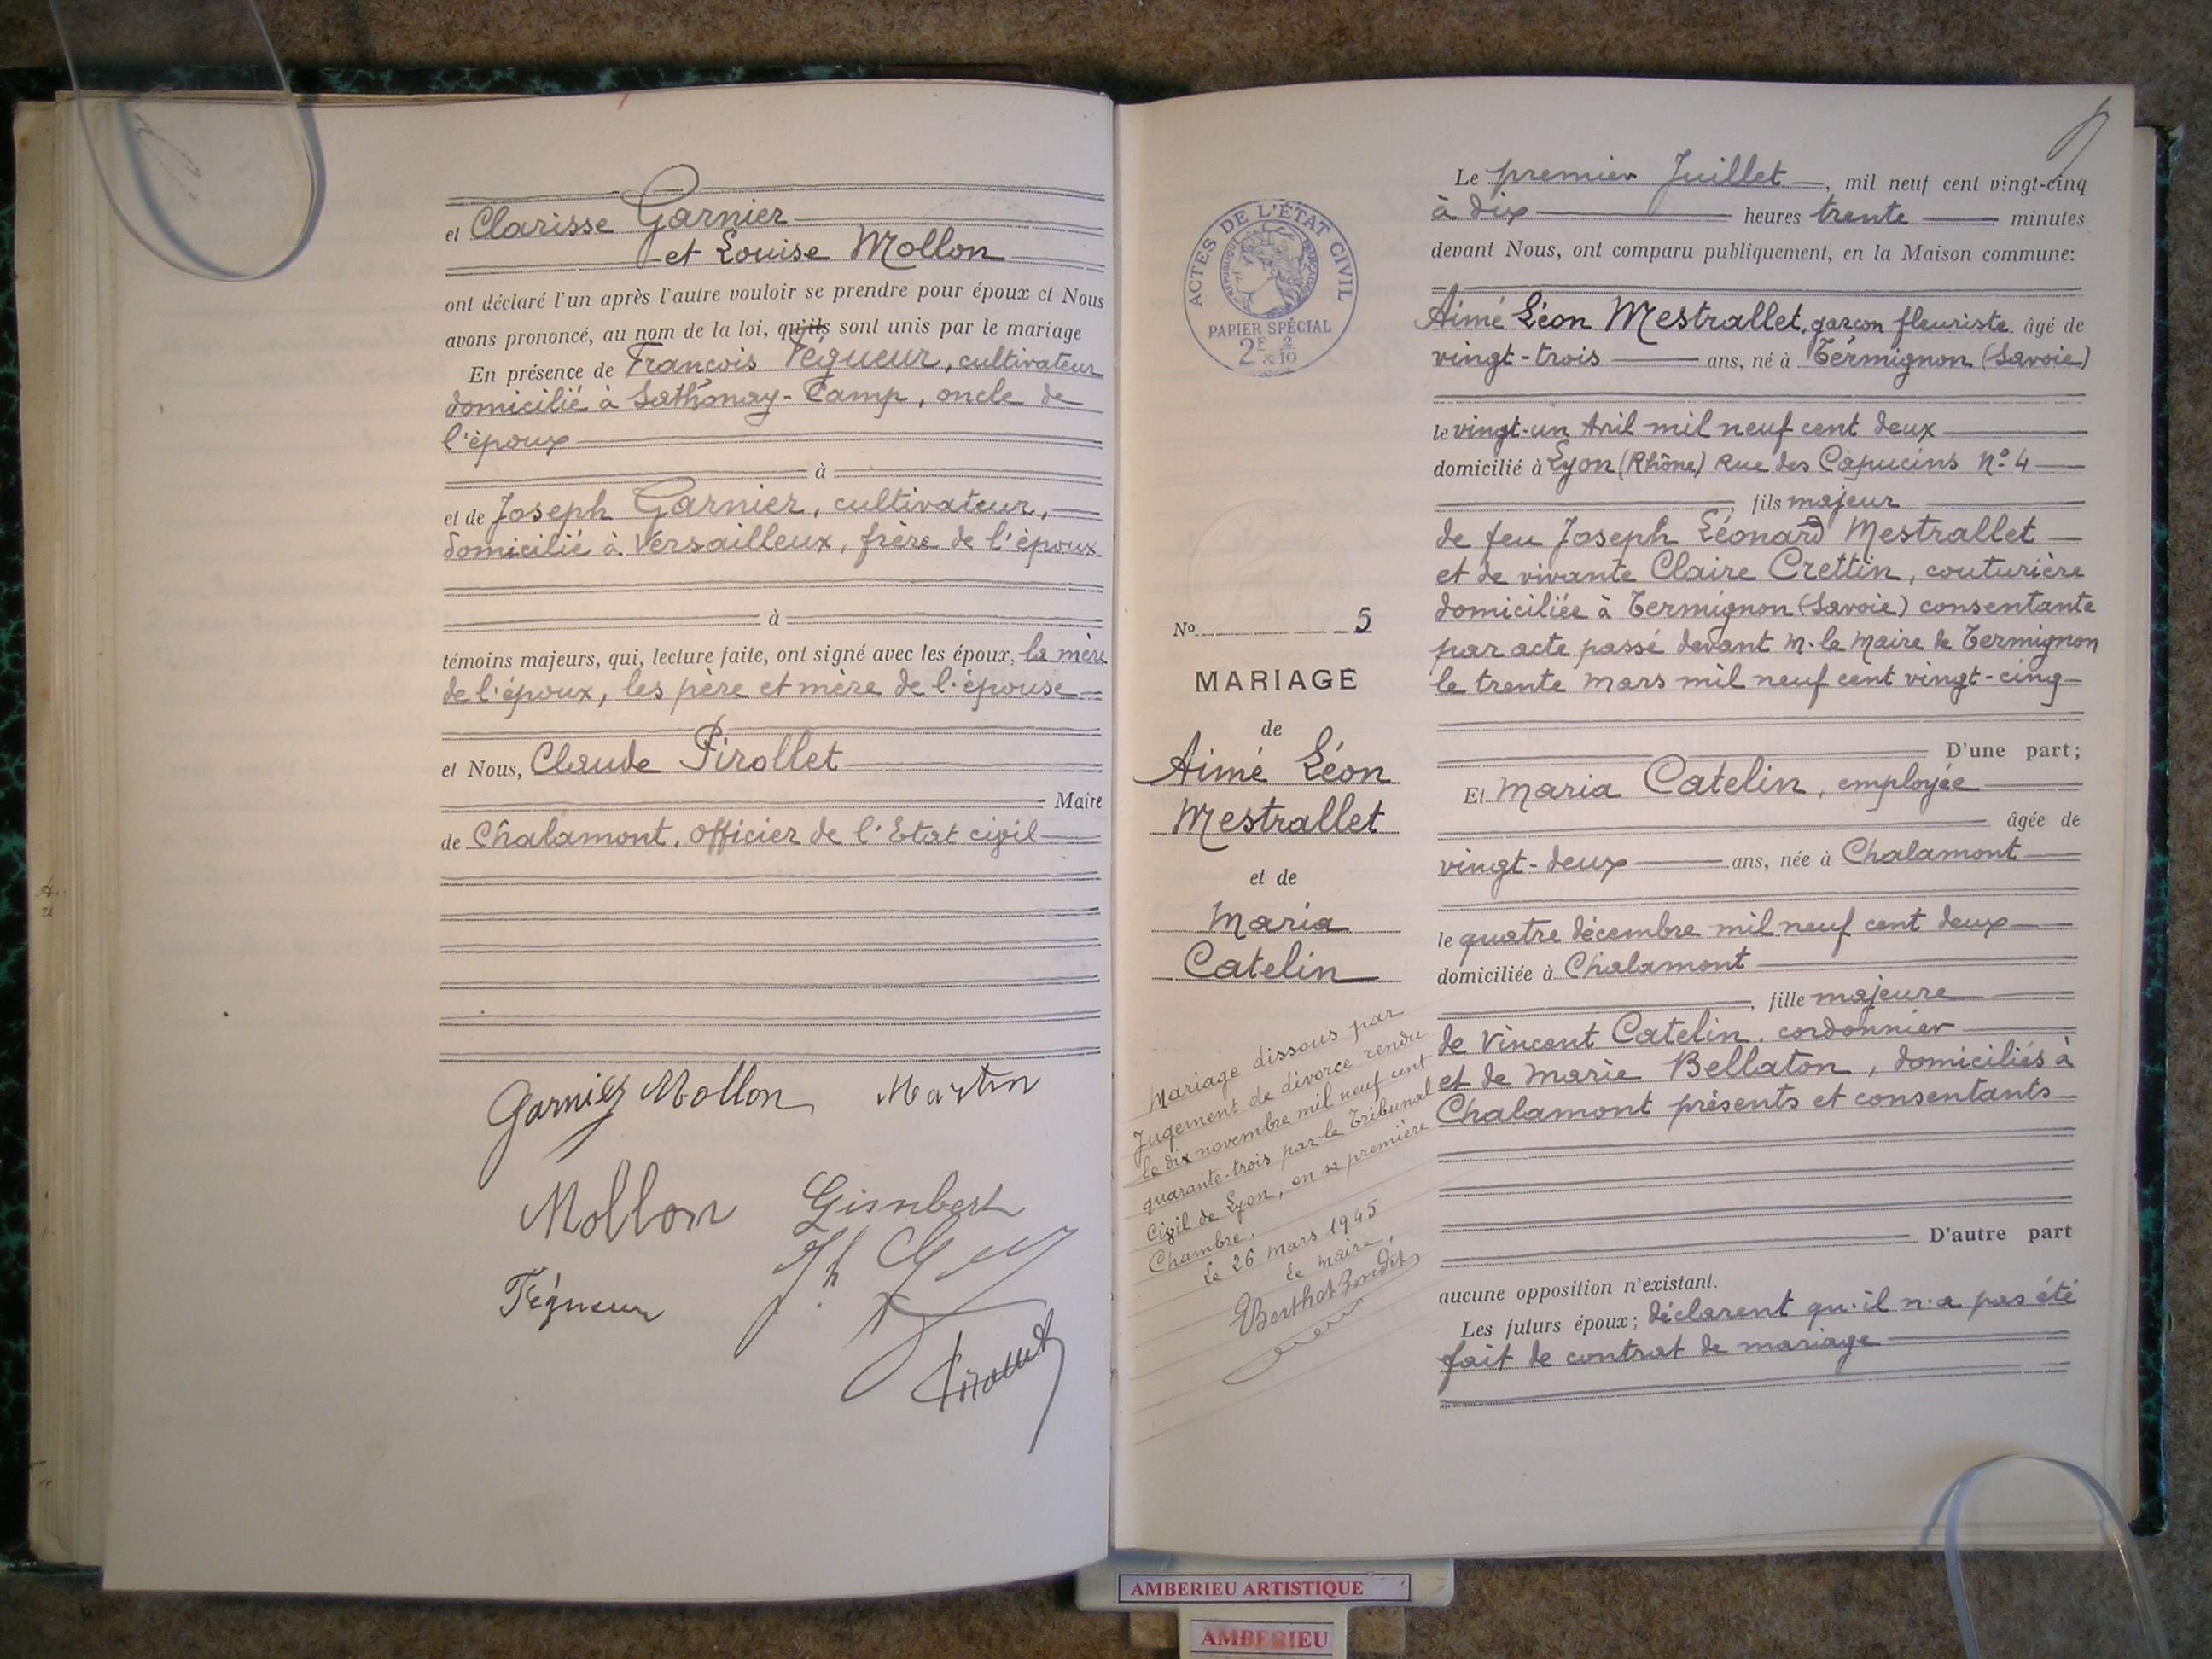 et Clarisse Garnier
et Louise Mollon
ont déclaré l'un après l'autre vouloir se prendre pour époux et Nous
avons prononcé, au nom de la loi, qu'ils sont unis par le mariage
En présence de François Tégueur, cultivateur
domicilié à Sathonay-Camp, oncle de
l'époux
à
et de Joseph Garnier, cultivateur,
domicilié à Versailleux, frère de l'époux
à
témoins majeurs, qui, lecture faite, ont signé avec les époux, la mère
de l'époux, les père et mère de l'épouse
et Nous, Claude Pirollet
Maire
de Chalamont, officier de l'Etat civil
Garnier Mollon Martin
Mollon Gimbert
Tégueur
Pirollet
ACTES DE L'ÉTAT CIVIL
RÉPUBLIQUE FRANÇAISE
PAPIER SPÉCIAL
2F 2/10
No 5
MARIAGE
de
Aimé Léon
Mestrallet
et de
Maria
Catelin
Mariage dissous par
Jugement de divorce rendu
le dix novembre mil neuf cent
quarante-trois par le Tribunal
Civil de Lyon, en sa première
Chambre.
Le 26 mars 1945
Le maire,
Le premier Juillet, mil neuf cent vingt-cinq
à dix heures trente minutes
devant Nous, ont comparu publiquement, en la Maison commune:
Aimé Léon Mestrallet, garçon fleuriste âgé de
vingt-trois ans, né à Termignon (Savoie)
le vingt-un Avril mil neuf cent deux
domicilié à Lyon (Rhône) Rue des Capucins No 4
, fils majeur
de feu Joseph Léonard Mestrallet
et de vivante Claire Crettin, couturière
domiciliée à Termignon (Savoie) consentante
par acte passé devant M. le Maire de Termignon
le trente mars mil neuf cent vingt-cinq
D'une part;
Et Maria Catelin, employée
âgée de
vingt-deux ans, née à Chalamont
le quatre décembre mil neuf cent deux
domiciliée à Chalamont
, fille majeure
de Vincent Catelin, cordonnier
et de Marie Bellaton, domiciliés à
Chalamont présents et consentants
D'autre part
aucune opposition n'existant.
Les futurs époux; déclarent qu'il n'a pas été
fait de contrat de mariage
AMBERIEU ARTISTIQUE
AMBERIEU